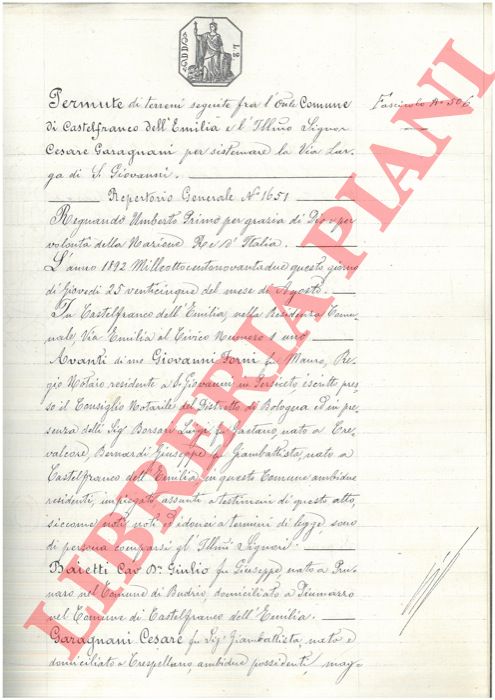 Permute di terreni seguite fra l'Onle Comune
Fascicolo N° 506
di Castelfranco dell'Emilia e l'Illmo Signor
Cesare Garagnani per sistemare la Via Lar-
ga di S. Giovanni.
Repertorio Generale N° 1651
Regnando Umberto Primo per grazia di Dio e per
volontà della Nazione Re d'Italia.
L'anno 1892 Milleottocentonovantadue questo giorno
di Giovedì 25 venticinque del mese di Agosto.
In Castelfranco dell'Emilia, nella Residenza Comu-
nale, Via Emilia al Civico Numero 1 uno
Avanti di me Giovanni Forni fu Mauro, Re-
gio Notaio residente a S. Giovanni in Persiceto iscritto pres-
so il Consiglio Notarile del Distretto di Bologna ed in pre-
senza delli Sig. Borsari Luigi fu Gaetano, nato a Cre-
valcore, Bernardi Giuseppe fu Giambattista, nato a
Castelfranco dell'Emilia, in questo Comune ambidue
residenti, impiegati, assunti a testimoni di questo atto,
siccome noti, noti ed idonei a termini di legge, sono
di persona comparsi gl'Illmi Signori.
Baietti Cav. Dr. Giulio fu Giuseppe, nato a Pru-
naro nel Comune di Budrio, domiciliato a Piumazzo
nel Comune di Castelfranco dell'Emilia.
Garagnani Cesare fu Sig. Giambattista, nato e
domiciliato a Crespellano, ambidue possidenti, mag-
LIBRERIA PIANI